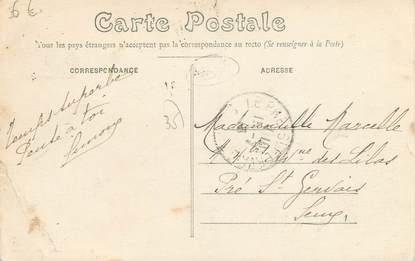 6 €
Carte Postale
Tous les pays étrangers n'acceptent pas la correspondance au recto (Se renseigner à la Poste)
CORRESPONDANCE
ADRESSE
35
Temps superbe
Pense à toi
Mademoiselle Marcelle
des Lilas
Pré St Gervais
Seine